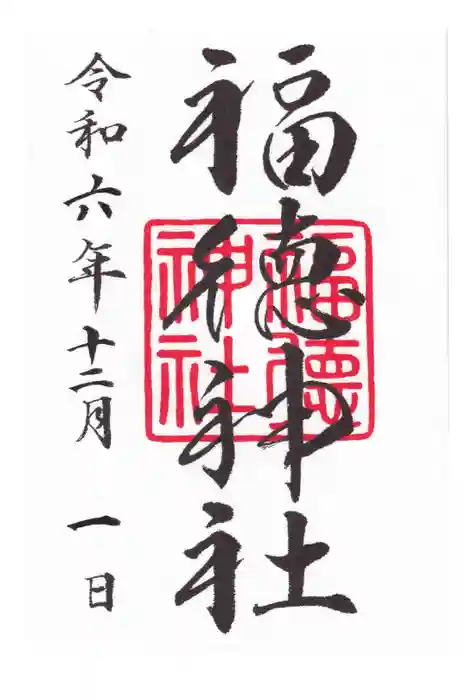 福德神社
福德神社
令和六年十二月一日